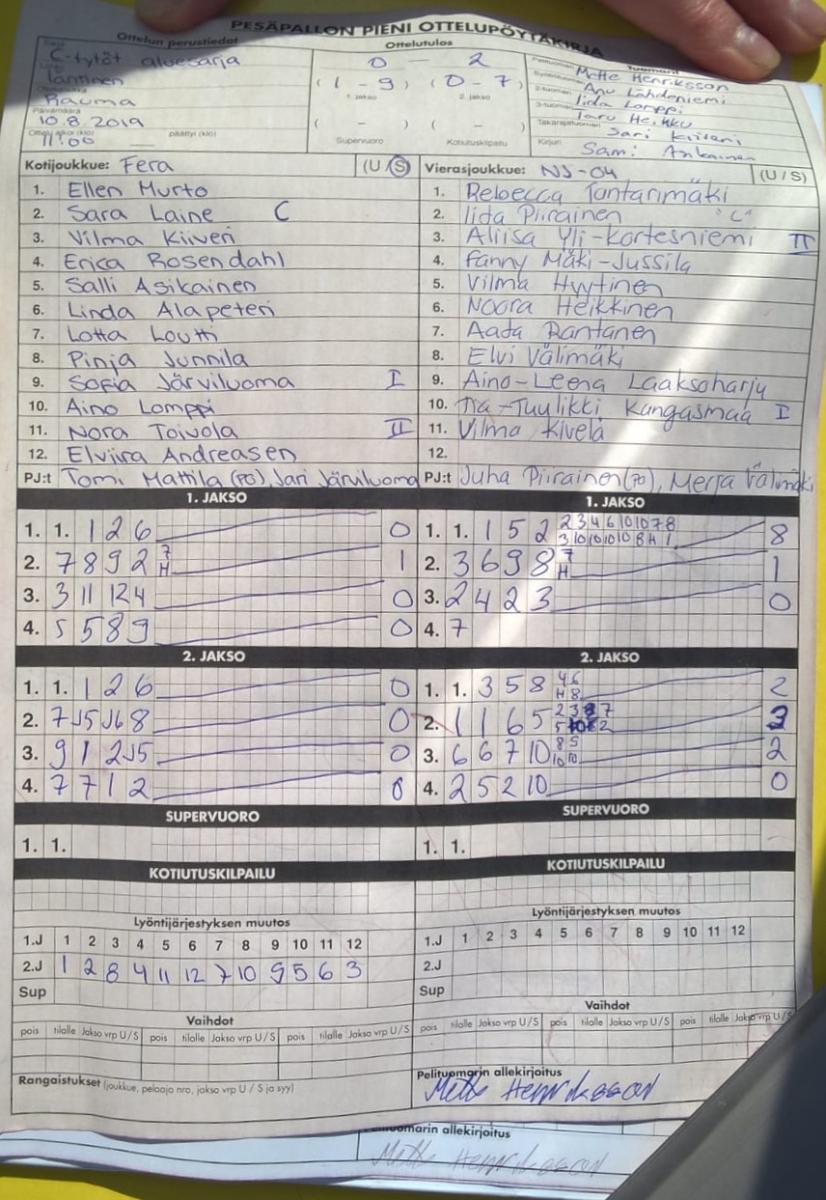 PESÄPALLON PIENI OTTELUPÖYTÄKIRJA
Ottelun perustiedot
Ottelutulos
Tuomarit
C-tytöt aluesarja
Läntinen
Rauma
Päivämäärä
10.8.2019
11:00
päättyi (klo)
0 - 2
(1 - 9) (0 - 7)
1. jakso 2. jakso
( - ) ( - )
Supervuoro Kotiutuskilpailu
Mette Henriksson
Anu Lähdeniemi
Iida Lomppi
Taru Heikku
Takarajatuomari
Sari
Kirjuri Sami
Kotijoukkue: Fera (U/S)
1. Ellen Murto
2. Sara Laine C
3. Vilma Kiiveri
4. Erica Rosendahl
5. Salli Asikainen
6. Linda Alapeteri
7. Lotta Louhi
8. Pinja Junnila
9. Sofia Järviluoma I
10. Aino Lomppi
11. Nora Toivola II
12. Elviira Andreasen
PJ:t Tomi Mattila (PO), Jari Järviluoma
Vierasjoukkue: NJ-04 (U/S)
1. Rebecca Tantarimäki
2. Iida Piirainen "C"
3. Aliisa Yli-Kortesniemi II
4. Fanny Mäki-Jussila
5. Vilma Hyytinen
6. Noora Heikkinen
7. Aada Rantanen
8. Elvi Välimäki
9. Aino-Leena Laaksoharju
10. Tia-Tuulikki Kangasmaa I
11. Vilma Kivelä
12.
PJ:t Juha Piirainen (PO), Merja Välimäki
1. JAKSO
1. 1. 1 2 6 0
2. 7 8 9 2 7 H 1
3. 3 11 12 4 0
4. 5 5 8 9 0
2. JAKSO
1. 1. 1 2 6 0
2. 7 J5 J6 8 0
3. 9 1 2 J5 0
4. 7 7 1 2 0
SUPERVUORO
1. 1.
KOTIUTUSKILPAILU
1. JAKSO
1. 1. 1 5 2 2 3 4 6 10 10 7 8 8
3 10 10 10 10 8 H 1
2. 3 6 9 8 7 H 1
3. 2 4 2 3 0
4. 7
2. JAKSO
1. 1. 3 5 8 4 6 2
H 8
2. 1 1 6 5 2 3 7 3
3. 6 6 7 10 8 5 2
10 10
4. 2 5 2 10 0
SUPERVUORO
1. 1.
KOTIUTUSKILPAILU
Lyöntijärjestyksen muutos
1.J 1 2 3 4 5 6 7 8 9 10 11 12
2.J 1 2 8 4 11 12 7 10 9 5 6 3
Sup
Vaihdot
pois tilalle Jakso vrp U/S pois tilalle Jakso vrp U/S pois tilalle Jakso vrp U/S
Rangaistukset (joukkue, pelaaja nro, jakso vrp U / S ja syy)
Lyöntijärjestyksen muutos
1.J 1 2 3 4 5 6 7 8 9 10 11 12
2.J
Sup
Vaihdot
pois tilalle Jakso vrp U/S pois tilalle Jakso vrp U/S pois tilalle Jakso vrp U/S
Pelituomarin allekirjoitus
Mette Henriksson
allekirjoitus
Mette Henriksson